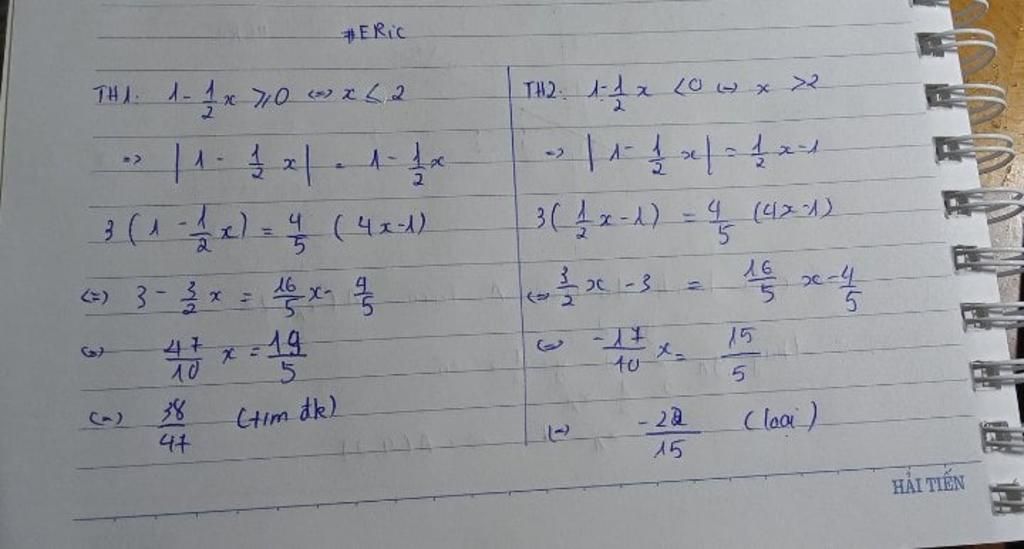 #ERic
TH1: 1 - 1/2 x ⩾ 0 ⇔ x ≤ 2
⇒ | 1 - 1/2 x | = 1 - 1/2 x
3 ( 1 - 1/2 x ) = 4/5 ( 4x - 1 )
⇔ 3 - 3/2 x = 16/5 x - 4/5
⇔ 47/10 x = 19/5
⇔ 38/47 (tìm đk)
TH2: 1 - 1/2 x < 0 ⇔ x > 2
⇒ | 1 - 1/2 x | = 1/2 x - 1
3 ( 1/2 x - 1 ) = 4/5 ( 4x - 1 )
⇔ 3/2 x - 3 = 16/5 x - 4/5
⇔ -17/10 x = 15/5
⇔ /15 (loại)
HẢI TIẾN